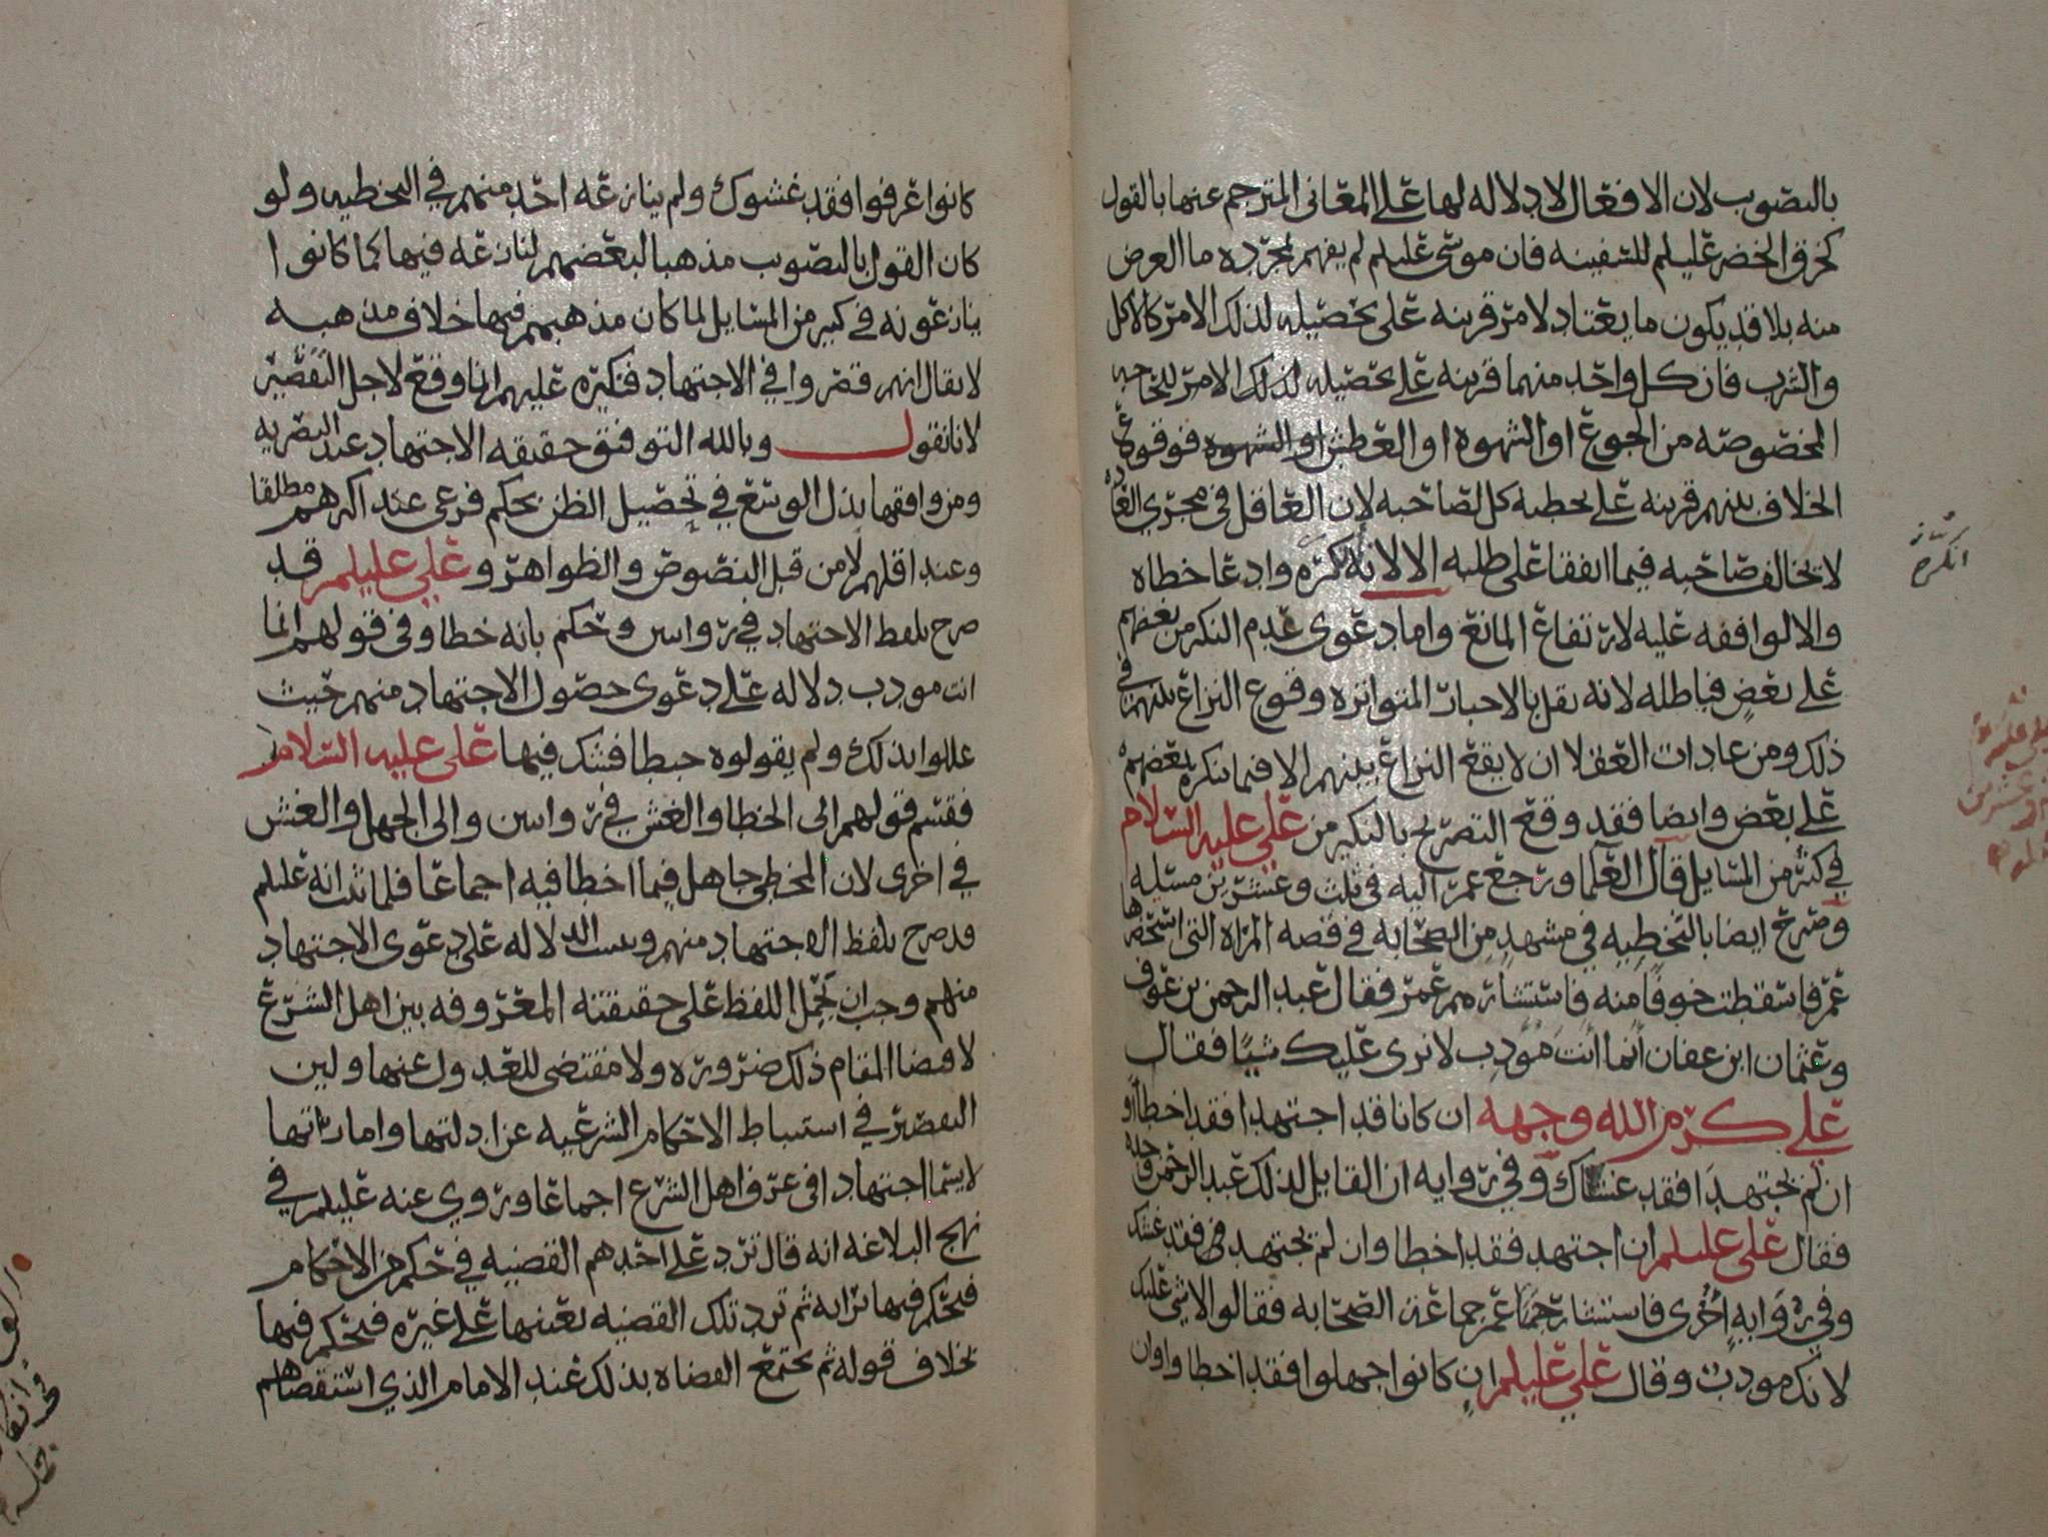 بالتصويب لان الافعال لا دلاله لها على المعانى المترجم عنها بالقول
كخرق الخضر عليلم للسفينه فان موسى عليلم لم يفهم بمجرده ما الغرض
منه بلا قد يكون ما يعتاد لامر قرينه على تحصيله لذلك الامر كالاكل
والشرب فان كل واحد منهما قرينه على تحصيله لذلك الامر للحاجه
المخصوصه من الجوع او الشهوه او العطش او الشهوه فوقوع
الخلاف بينهم قرينه على تخطيه كل لصاحبه لان العاقل فى مجرى العاده
لا يخالف صاحبه فيما اتفقا على طلبه الا لانه كره وادعا خطاه
والا لوافقه عليه لارتفاع المانع واما دعوى عدم النكير من بعضهم
على بعض فباطله لانه نقل بالاخبار المتواتره وقوع النزاع بينهم في
ذلك ومن عادات العقلا ان لا يقع النزاع بينهم الا فيما ينكره بعضهم
على بعض وايضا فقد وقع التصريح بالنكير من علي عليه السلام
في كثير من المسايل قال العلما ورجع عمر اليه فى ثلث وعشرين مسئله
وصرح ايضا بالتخطيه في مشهد من الصحابه في قصه المراه التى استحضرها
عمر فاسقطت خوفا منه فاستشارهم عمر فقال عبد الرحمن بن عوف
وعثمان ابن عفان أنما أنت مؤدب لا نرى عليك شيئا فقال
علي كرم الله وجهه ان كانا قد اجتهدا فقد اخطا او
ان لم يجتهدا فقد غشاك وفي روايه ان القايل لذلك عبد الرحمن وحده
فقال على عليلم ان اجتهد فقد اخطا وان لم يجتهد فقد غشك
وفي روايه أخرى فاستشار عمر جماعة الصحابه فقالوا لا شي عليك
لانك مودب وقال علي عليلم ان كانوا جهلوا فقد اخطاوا وان
انكره
كانوا عرفوا فقد غشوك ولم ينازعه احد منهم في التخطيه ولو
كان القول بالتصويب مذهبا لبعضهم لنازعه فيها كما كانوا
ينازعونه في كثير من المسايل لما كان مذهبهم فيها خلاف مذهبه
لا يقال انهم قصروا في الاجتهاد فنكيره عليهم انما وقع لاجل التقصير
لانا نقول وبالله التوفيق حقيقه الاجتهاد عند البصريه
ومن وافقها بذل الوسع في تحصيل الظن بحكم فرعى عند اكثرهم مطلقا
وعند اقلهم لا من قبل النصوص والظواهر وعلي عليلم قد
صرح بلفظ الاجتهاد في روايتين وحكم بانه خطا وفى قولهم انما
انت مودب دلاله على دعوى حصول الاجتهاد منهم حيث
عللوا بذلك ولم يقولوه خبطا فشك فيها على عليه السلام
فقسم قولهم الى الخطا والغش في روايتين والى الجهل والغش
في اخرى لان المخطى جاهل فيما اخطا فيه اجماعا فلما ثبت انه عليلم
قد صرح بلفظ الاجتهاد منهم وثبت الدلاله على دعوى الاجتهاد
منهم وجب ان يحمل اللفظ على حقيقته المعروفه بين اهل الشرع
لاقتضا المقام ذلك ضروره ولا مقتضى للعدول عنها وليس
التقصير في استنباط الاحكام الشرعيه عن ادلتها واماراتها
لا يسما اجتهادا في عرف اهل الشرع اجماعا وروي عنه عليلم في
نهج البلاغه انه قال ترد على احدهم القضيه في حكم من الاحكام
فيحكم فيها برايه ثم ترد تلك القضيه بعينها على غيره فيحكم فيها
بخلاف قوله ثم يجتمع القضاه بذلك عند الامام الذي استقضاهم